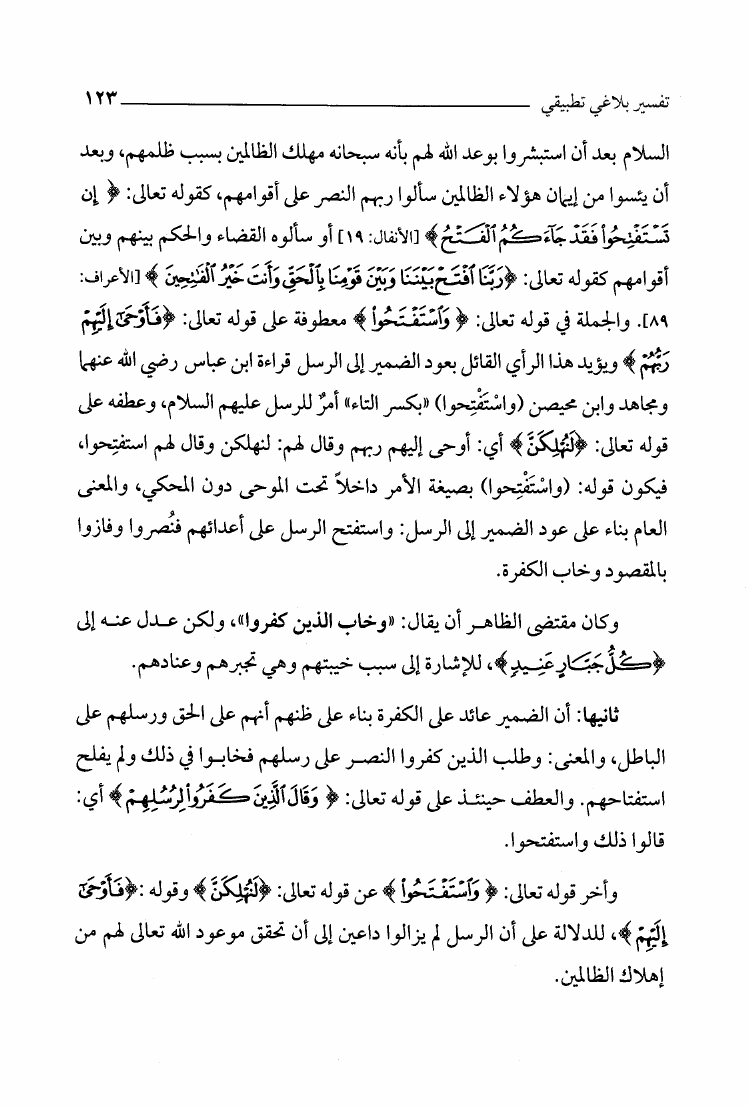 تفسير بلاغي تطبيقي ــــــــــــــــــــــــــــــ ١٢٣
السلام بعد أن استبشروا بوعد الله لهم بأنه سبحانه مهلك الظالمين بسبب ظلمهم، وبعد
أن يئسوا من إيمان هؤلاء الظالمين سألوا ربهم النصر على أقوامهم، كقوله تعالى: ﴿ إِن
تَسْتَفْتِحُواْ فَقَدْ جَآءَكُمُ ٱلْفَتْحُ﴾ [الأنفال: ١٩] أو سألوه القضاء والحكم بينهم وبين
أقوامهم كقوله تعالى: ﴿رَبَّنَا ٱفْتَحْ بَيْنَنَا وَبَيْنَ قَوْمِنَا بِٱلْحَقِّ وَأَنتَ خَيْرُ ٱلْفَٰتِحِينَ ﴾ [الأعراف:
٨٩]. والجملة في قوله تعالى: ﴿ وَٱسْتَفْتَحُواْ ﴾ معطوفة على قوله تعالى: ﴿فَأَوْحَىٰٓ إِلَيْهِمْ
رَبُّهُمْ ﴾ ويؤيد هذا الرأي القائل بعود الضمير إلى الرسل قراءة ابن عباس رضي الله عنهما
ومجاهد وابن محيصن (واسْتَفْتِحوا) «بكسر التاء» أمرٌ للرسل عليهم السلام، وعطفه على
قوله تعالى: ﴿لَنُهْلِكَنَّ ﴾ أي: أوحى إليهم ربهم وقال لهم: لنهلكن وقال لهم استفتِحوا،
فيكون قوله: (واسْتَفْتِحوا) بصيغة الأمر داخلاً تحت الموحى دون المحكي، والمعنى
العام بناء على عود الضمير إلى الرسل: واستفتح الرسل على أعدائهم فنُصروا وفازوا
بالمقصود وخاب الكفرة.
وكان مقتضى الظاهـر أن يقال: «وخاب الذين كفروا»، ولكن عـدل عنـه إلى
﴿كُلُّ جَبَّارٍ عَنِيدٍ ﴾، للإشارة إلى سبب خيبتهم وهي تجبرهم وعنادهم.
ثانيها: أن الضمير عائد على الكفرة بناء على ظنهم أنهم على الحق ورسلهم على
الباطل، والمعنى: وطلب الذين كفروا النصـر على رسلهم فخابـوا في ذلك ولم يفلح
استفتاحهم. والعطف حينئـذ على قوله تعالى: ﴿ وَقَالَ ٱلَّذِينَ كَفَرُواْ لِرُسُلِهِمْ ﴾ أي:
قالوا ذلك واستفتحوا.
وأخر قوله تعالى: ﴿ وَٱسْتَفْتَحُواْ ﴾ عن قوله تعالى: ﴿لَنُهْلِكَنَّ ﴾ وقوله :﴿فَأَوْحَىٰٓ
إِلَيْهِمْ ﴾، للدلالة على أن الرسل لم يزالوا داعين إلى أن تحقق موعود الله تعالى لهم من
إهلاك الظالمين.